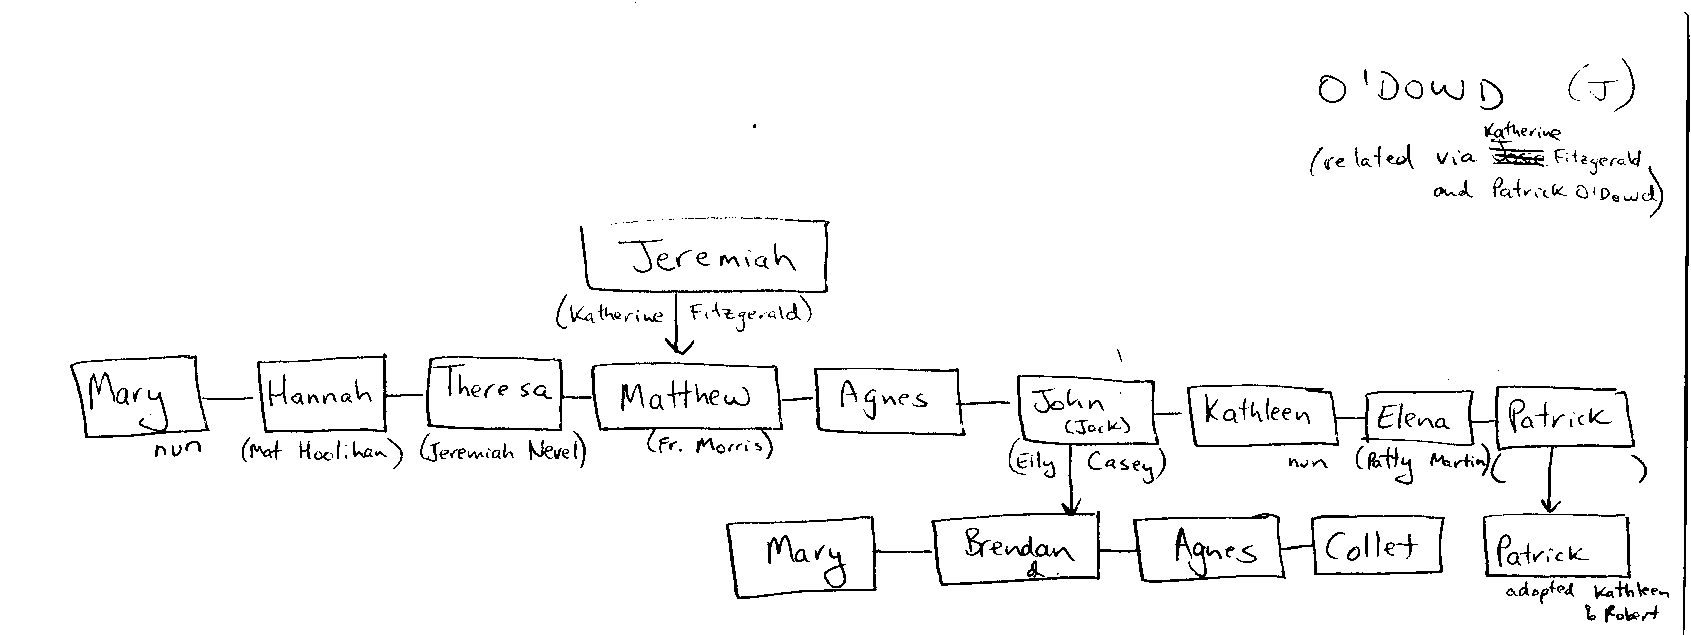 O'DOWD (J)
Katherine
(related via Josie Fitzgerald
and Patrick O'Dowd)
Jeremiah
(Katherine Fitzgerald)
Mary
Hannah
Theresa
Matthew
Agnes
John
(Jack)
Kathleen
Elena
Patrick
nun
(Mat Hoolihan)
(Jeremiah Nevel)
(Fr. Morris)
(Eily Casey)
nun
(Patty Martin)
( )
Mary
Brendan
d.
Agnes
Collet
Patrick
adopted Kathleen
& Robert